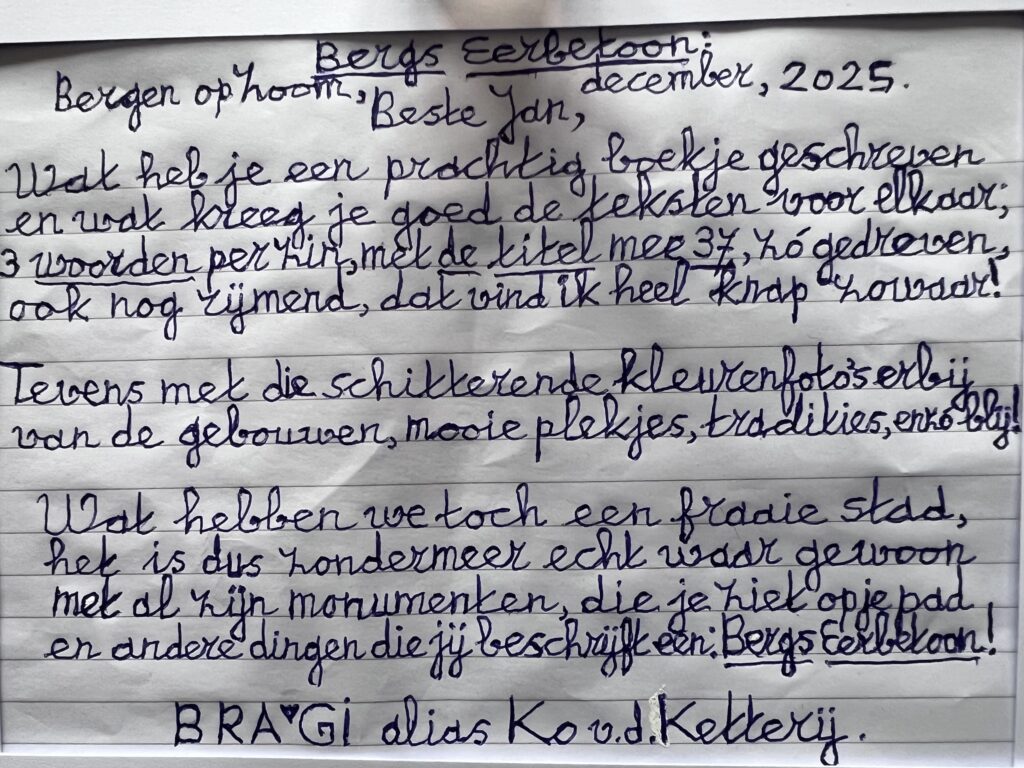 Bergs Eerbetoon:
Bergen op Zoom, december, 2025.
Beste Jan,
Wat heb je een prachtig boekje geschreven
en wat kreeg je goed de teksten voor elkaar;
3 woorden per zin, met de titel mee 37, zó gedreven,
ook nog rijmend, dat vind ik heel knap zowaar!
Tevens met die schitterende kleurenfoto's erbij
van de gebouwen, mooie plekjes, tradities, en zo blij!
Wat hebben we toch een fraaie stad,
het is dus zondermeer echt waar gewoon
met al zijn monumenten, die je ziet op je pad,
en andere dingen die jij beschrijft een: Bergs Eerbetoon!
BRA♥GI alias Ko v.d. Ketterij.